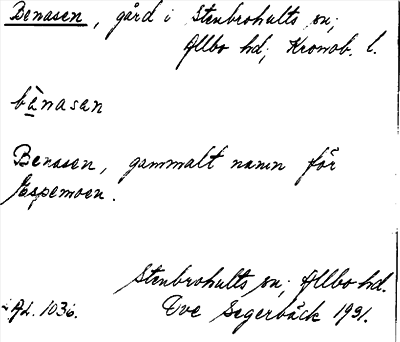 Benasen, gård i Stenbrohults sn;
Allbo hd; Kronob. l.
bɛ̀nasan
Benasen, gammalt namn för
Espemoen.
Stenbrohults sn; Allbo hd.
AL. 1036. Ove Segerbäck 1931.